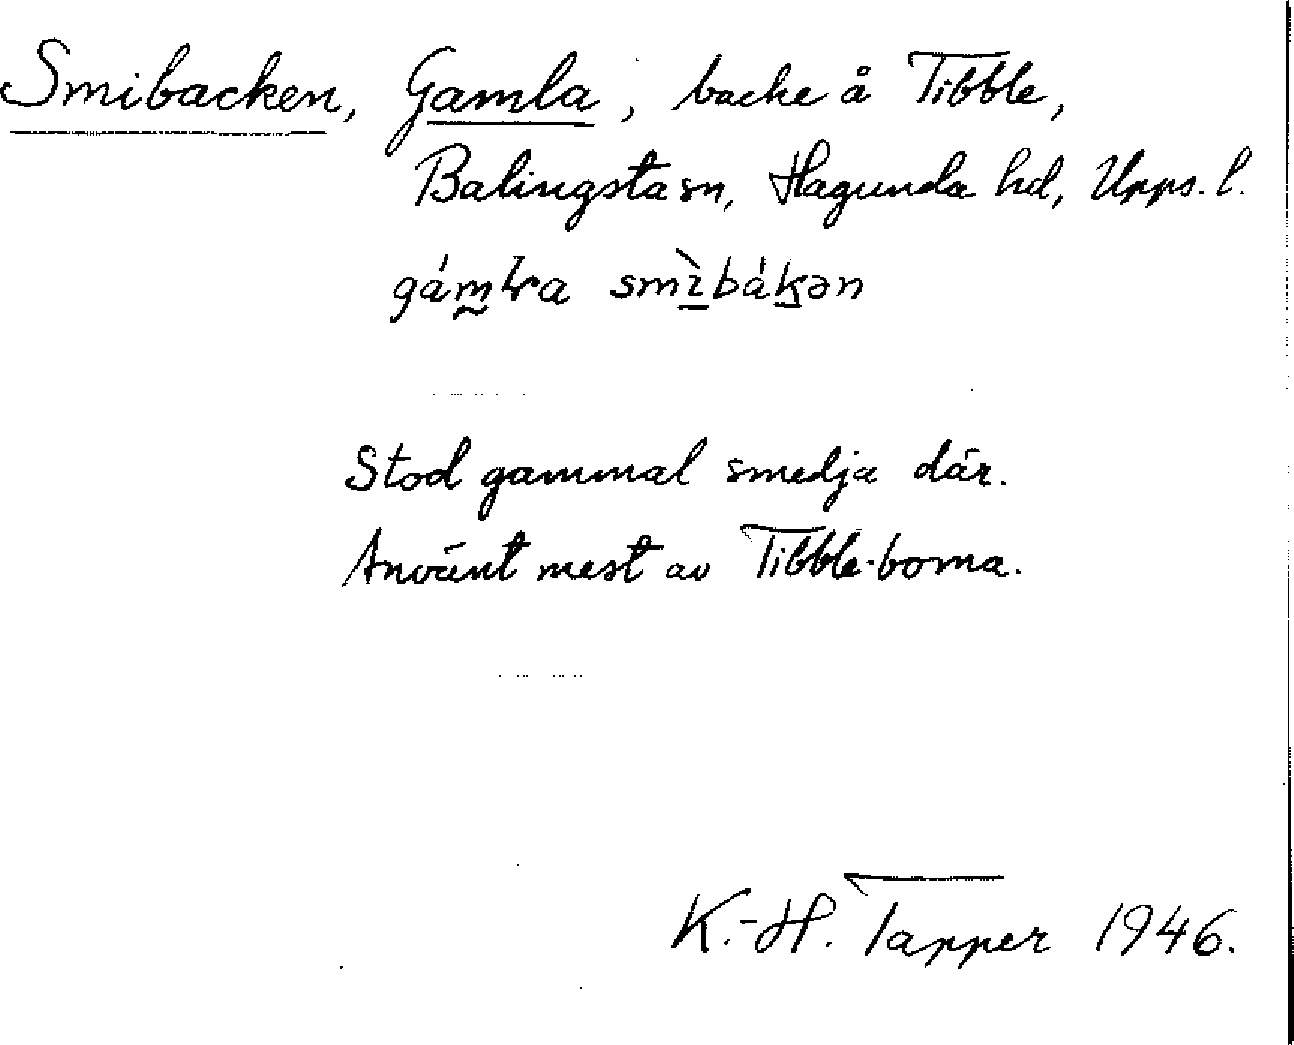 Smibacken, Gamla, backe å Tibble,
Balingsta sn, Hagunda hd, Upps. l.
gám̰ɫa smı̱̀báḵən
Stod gammal smedja där.
Använt mest av Tibble-borna.
K.-H. Tapper 1946.